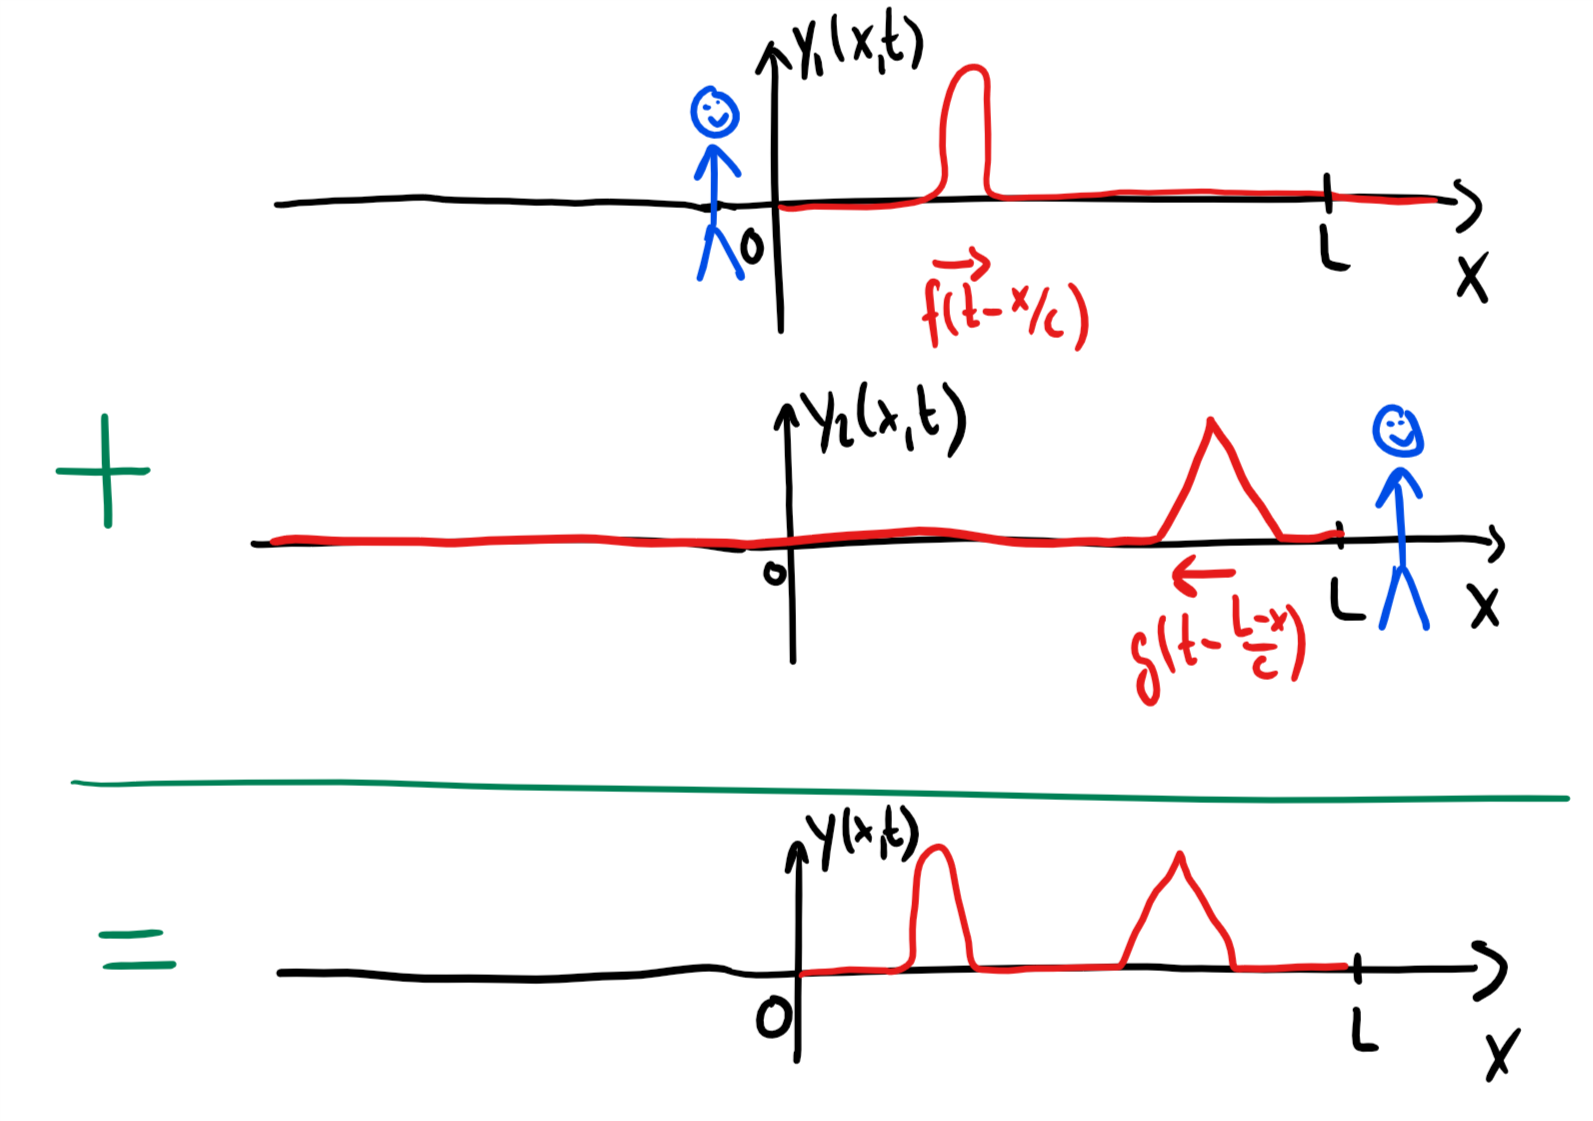 y₁(x,t)
0
L
x
f(t-x/c)
+
y₂(x,t)
0
L
x
g(t-\frac{L-x}{c})
y(x,t)
=
0
L
x